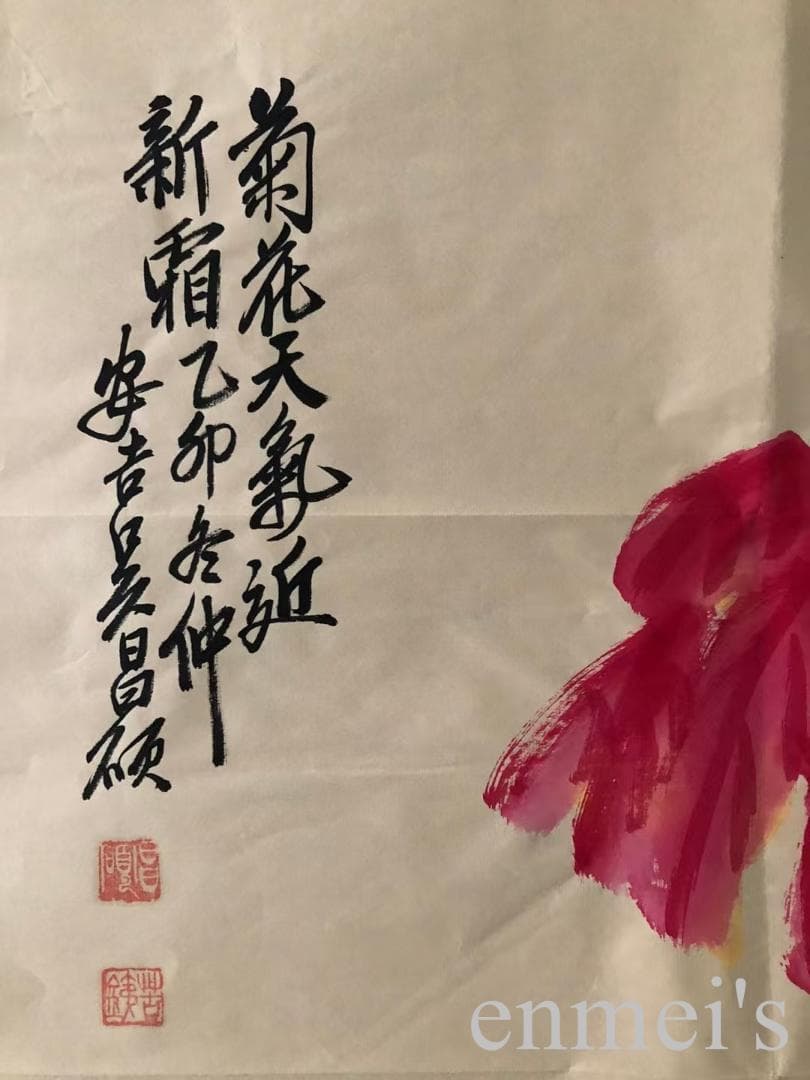 菊花天氣近
新霜乙卯冬仲
安吉吳昌碩
昌碩
苦鐵
enmei's